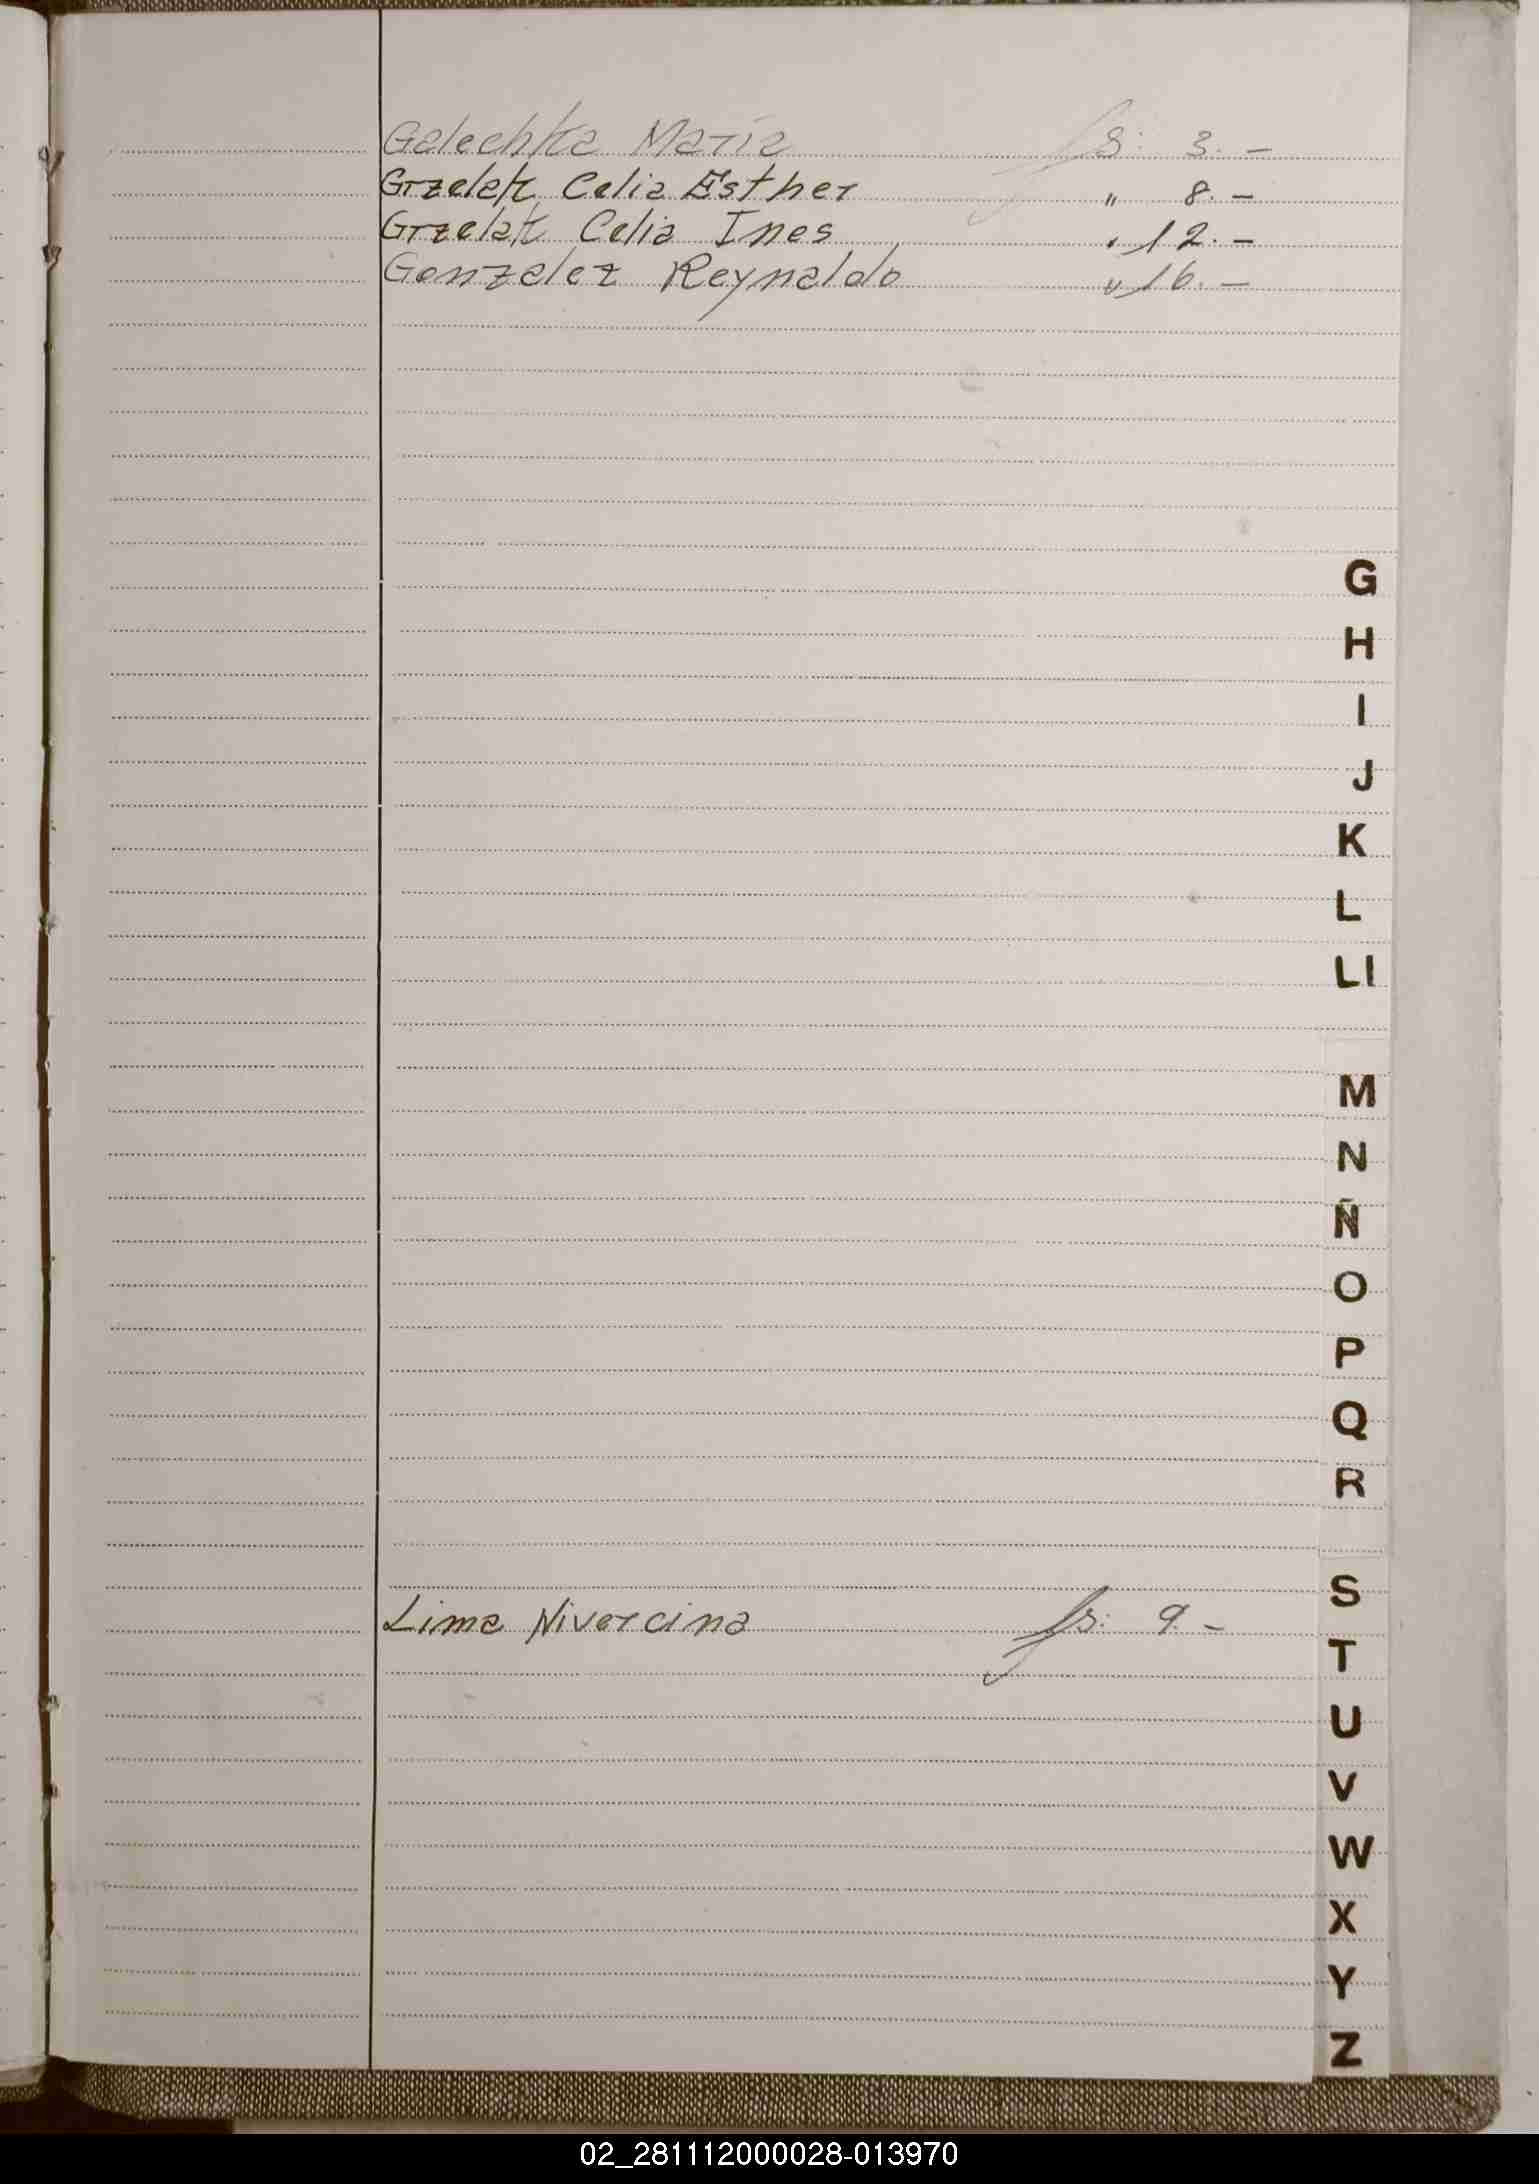 Galechka Maria fs: 3.-
Grzelak Celia Esther " 8.-
Grzelak Celia Ines " 12.-
Gonzalez Reynaldo " 16.-
G
H
I
J
K
L
Ll
M
N
Ñ
O
P
Q
R
S
Lima Nivercina fs: 9.-
T
U
V
W
X
Y
Z
02_281112000028-013970